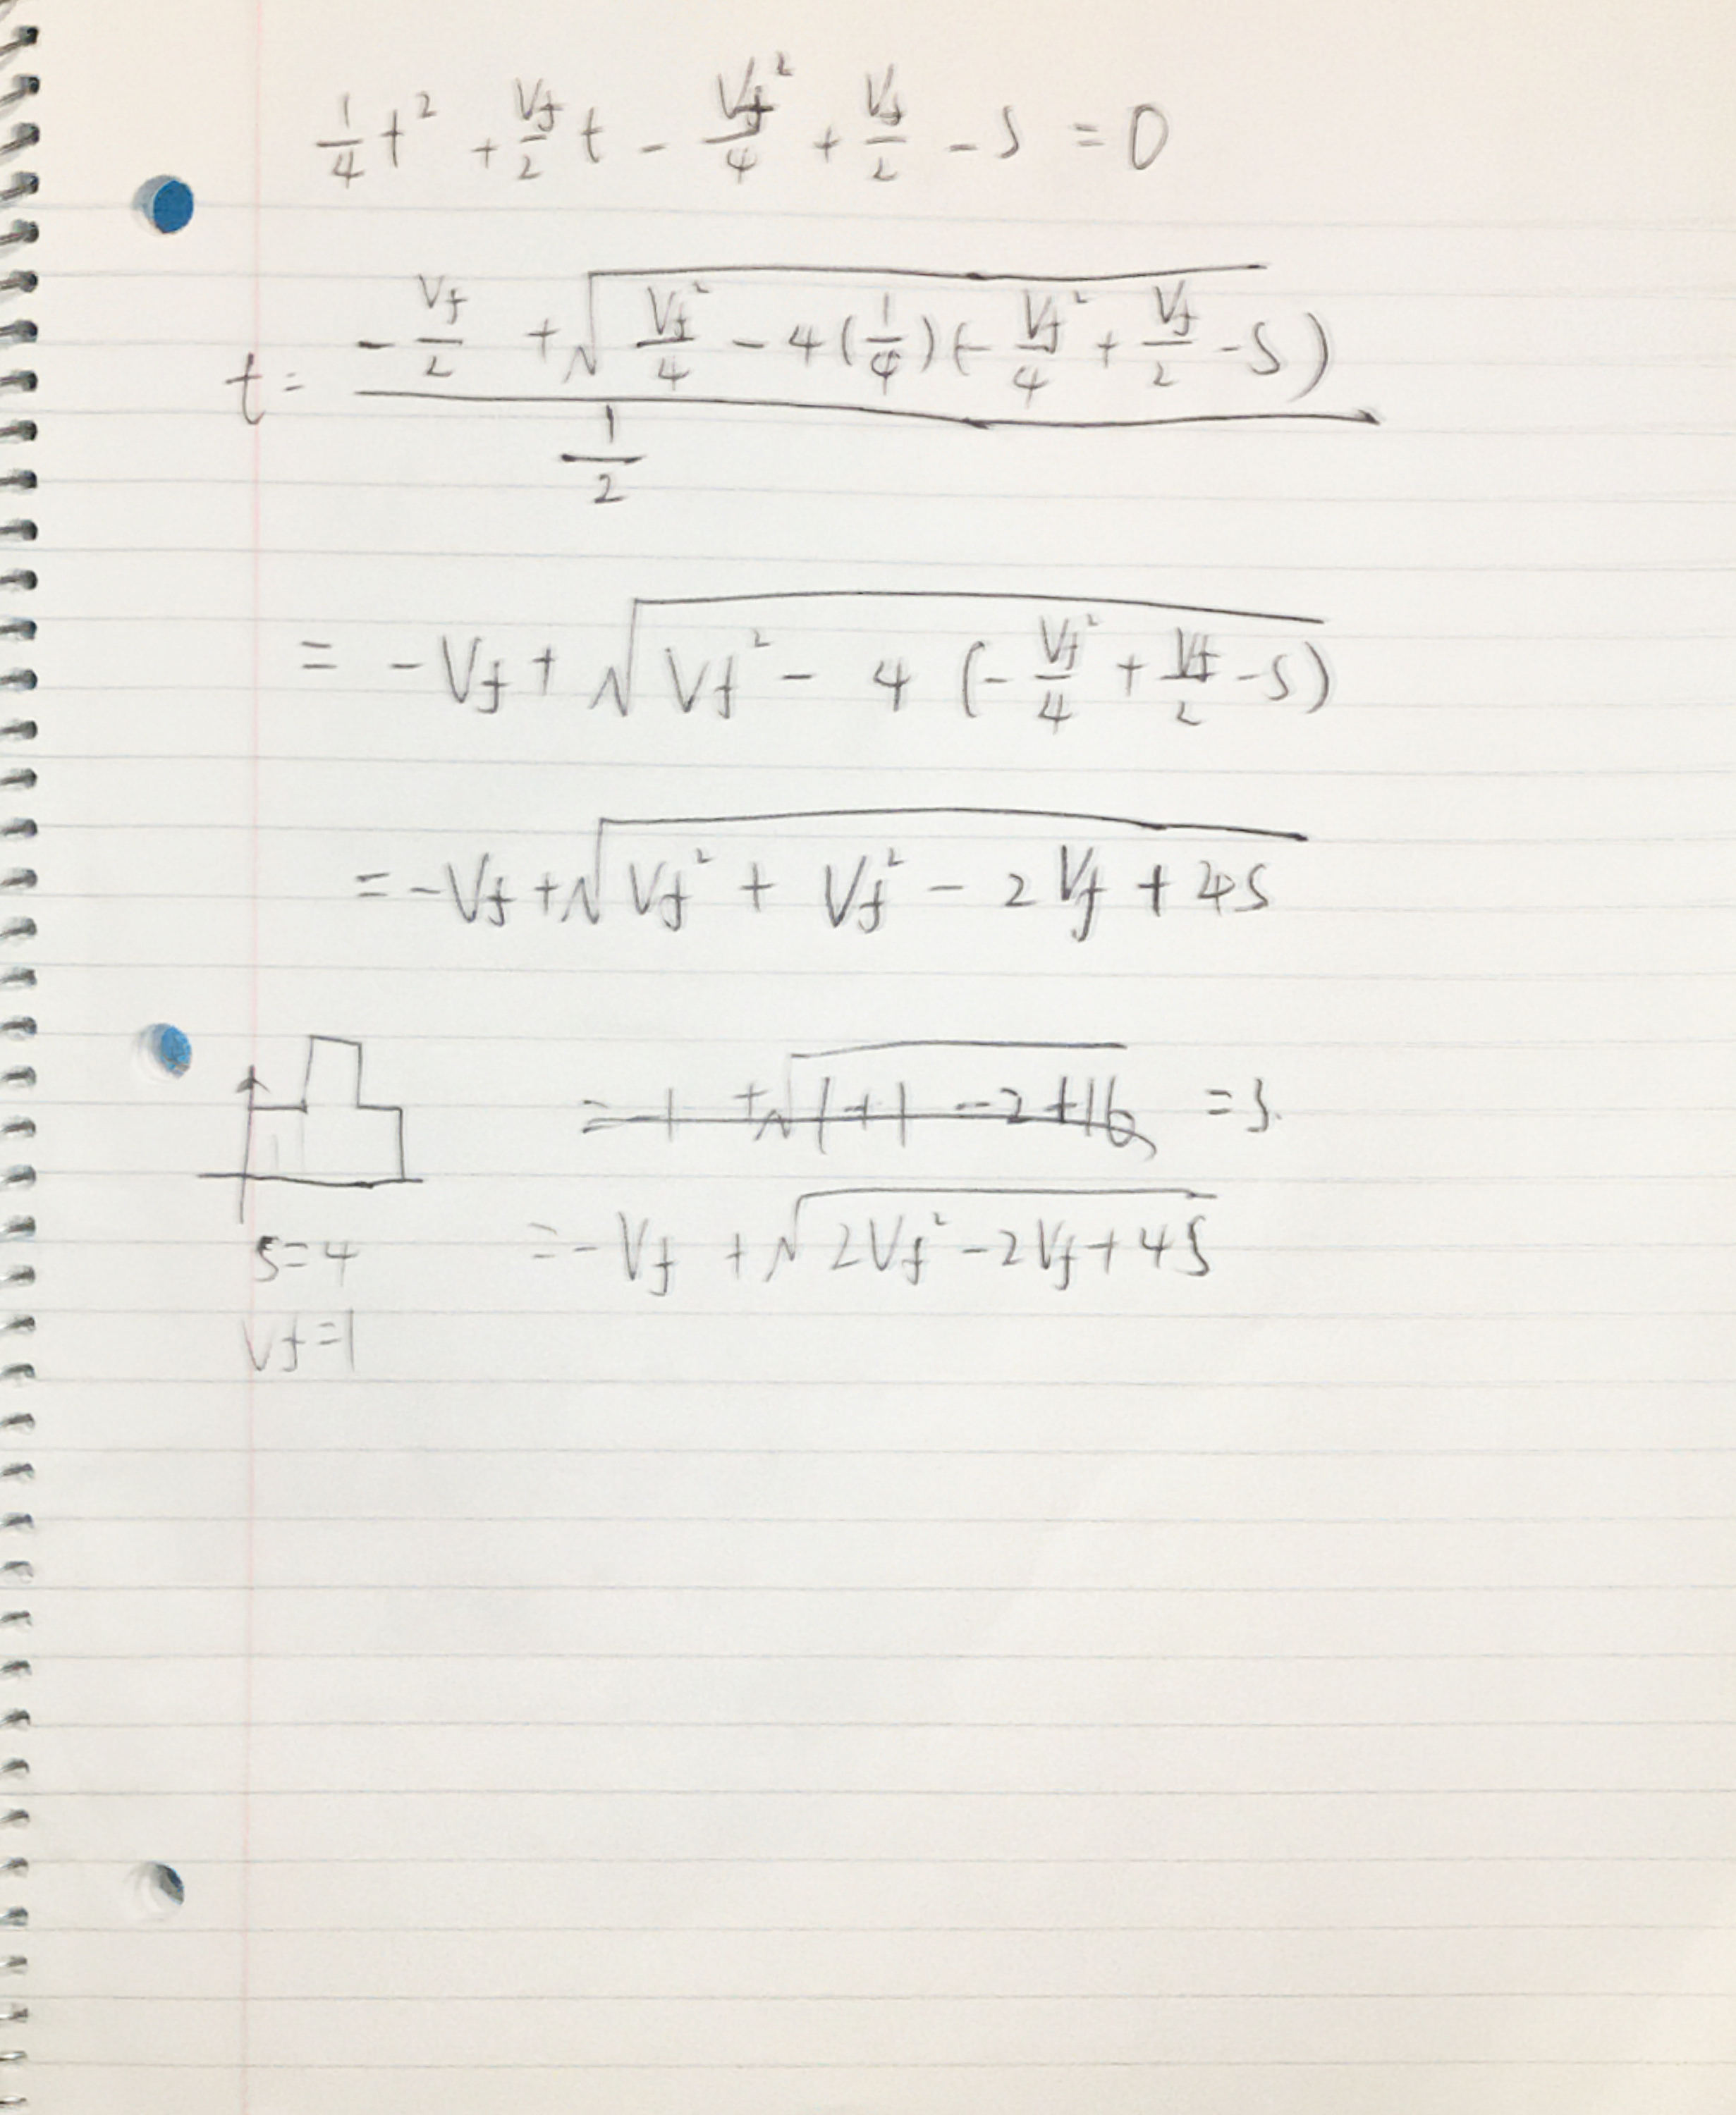 1/4 t² + Vf/2 t - Vf²/4 + Vf/2 - S = 0
t = (-Vf/2 + √(Vf²/4 - 4(1/4)(-Vf²/4 + Vf/2 - S))) / (1/2)
= -Vf + √(Vf² - 4(-Vf²/4 + Vf/2 - S))
= -Vf + √(Vf² + Vf² - 2Vf + 4S)
= -1 + √(1+1-2+16) = 3.
= -Vf + √(2Vf² - 2Vf + 4S)
S=4
Vf=1